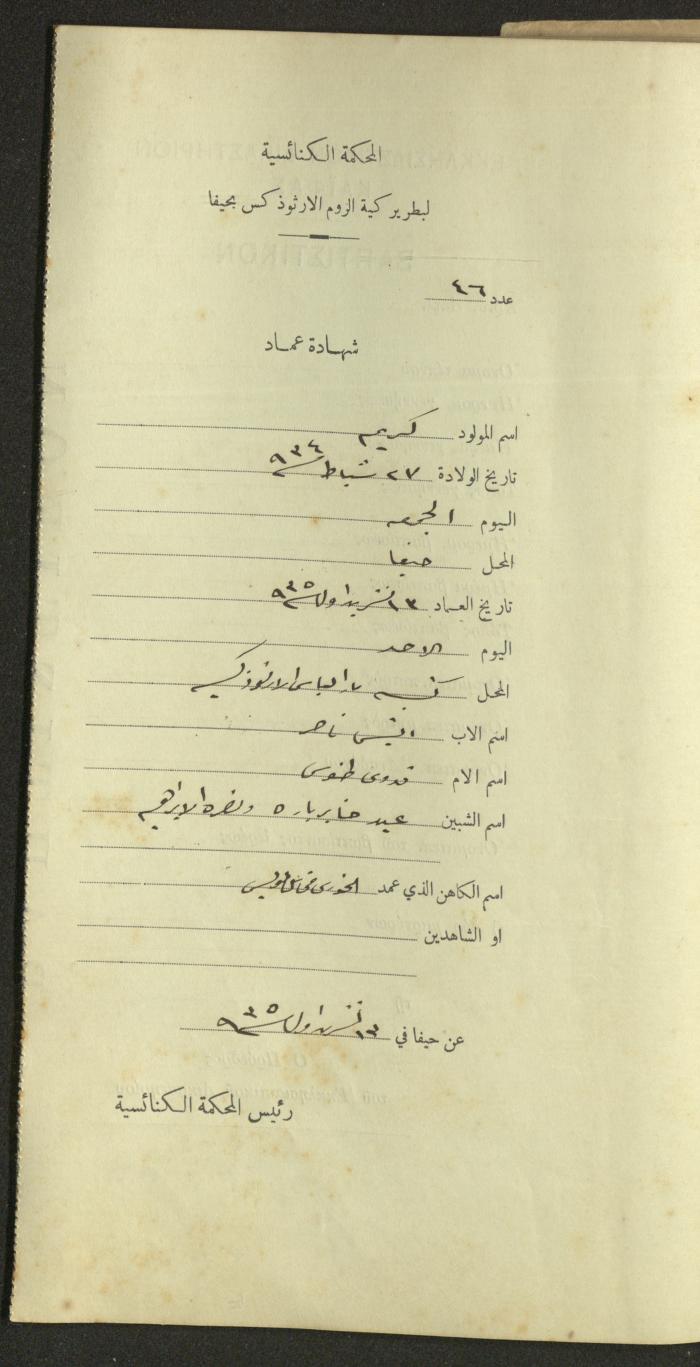 المحكمة الكنائسية
لبطريركية الروم الارثوذكس بحيفا
عدد ٤٦
شهادة عماد
اسم المولود كريم
تاريخ الولادة ٢٧ شباط ٩٣٤
اليوم الجمعه
المحل حيفا
تاريخ العماد ١٣ تشرين اول ٩٣٥
اليوم الاحد
المحل كنيسه الارثوذكسيه
اسم الاب ناصر
اسم الام طنوس
اسم الشبين عيد
اسم الكاهن الذي عمد الخوري
او الشاهدين
عن حيفا في ١٣ تشرين اول ٩٣٥
رئيس المحكمة الكنائسية